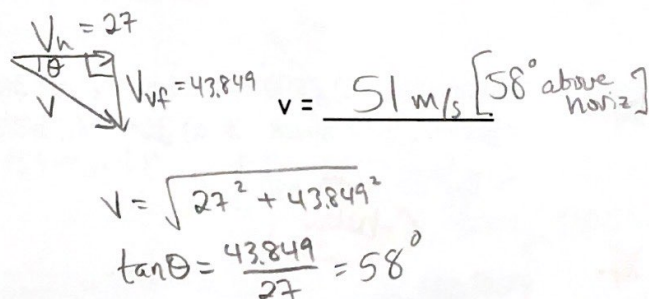 Vh = 27
θ
V
Vvf = 43.849
v = 51 m/s [58° above horiz]
V = √27² + 43.849²
tanθ = 43.849/27 = 58°